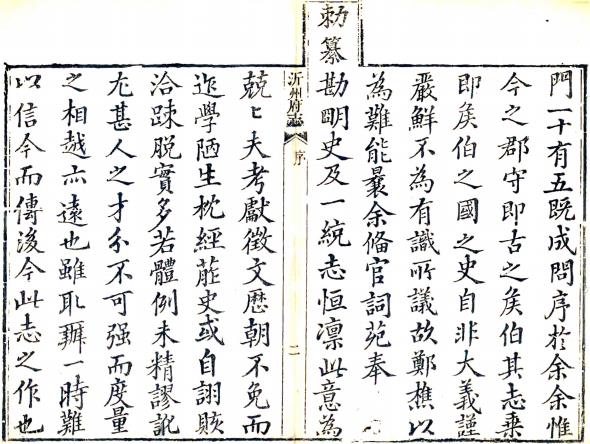 門一十有五既成問序於余余惟
今之郡守即古之矦伯其志乗
即矦伯之國之史自非大義謹
嚴鮮不為有識所議故鄭樵以
為難能曩余俻官詞苑奉
勅纂勘明史及一統志恒凛此意為
沂州府志 序 二
兢〻夫考獻徵文歷朝不免而
迩學陋生枕經葄史或自詡賅
洽踈脫實多若體例未精謬訛
尤甚人之才分不可强而度量
之相越亦遠也雖取辦一時難
以信今而傳後今此志之作也